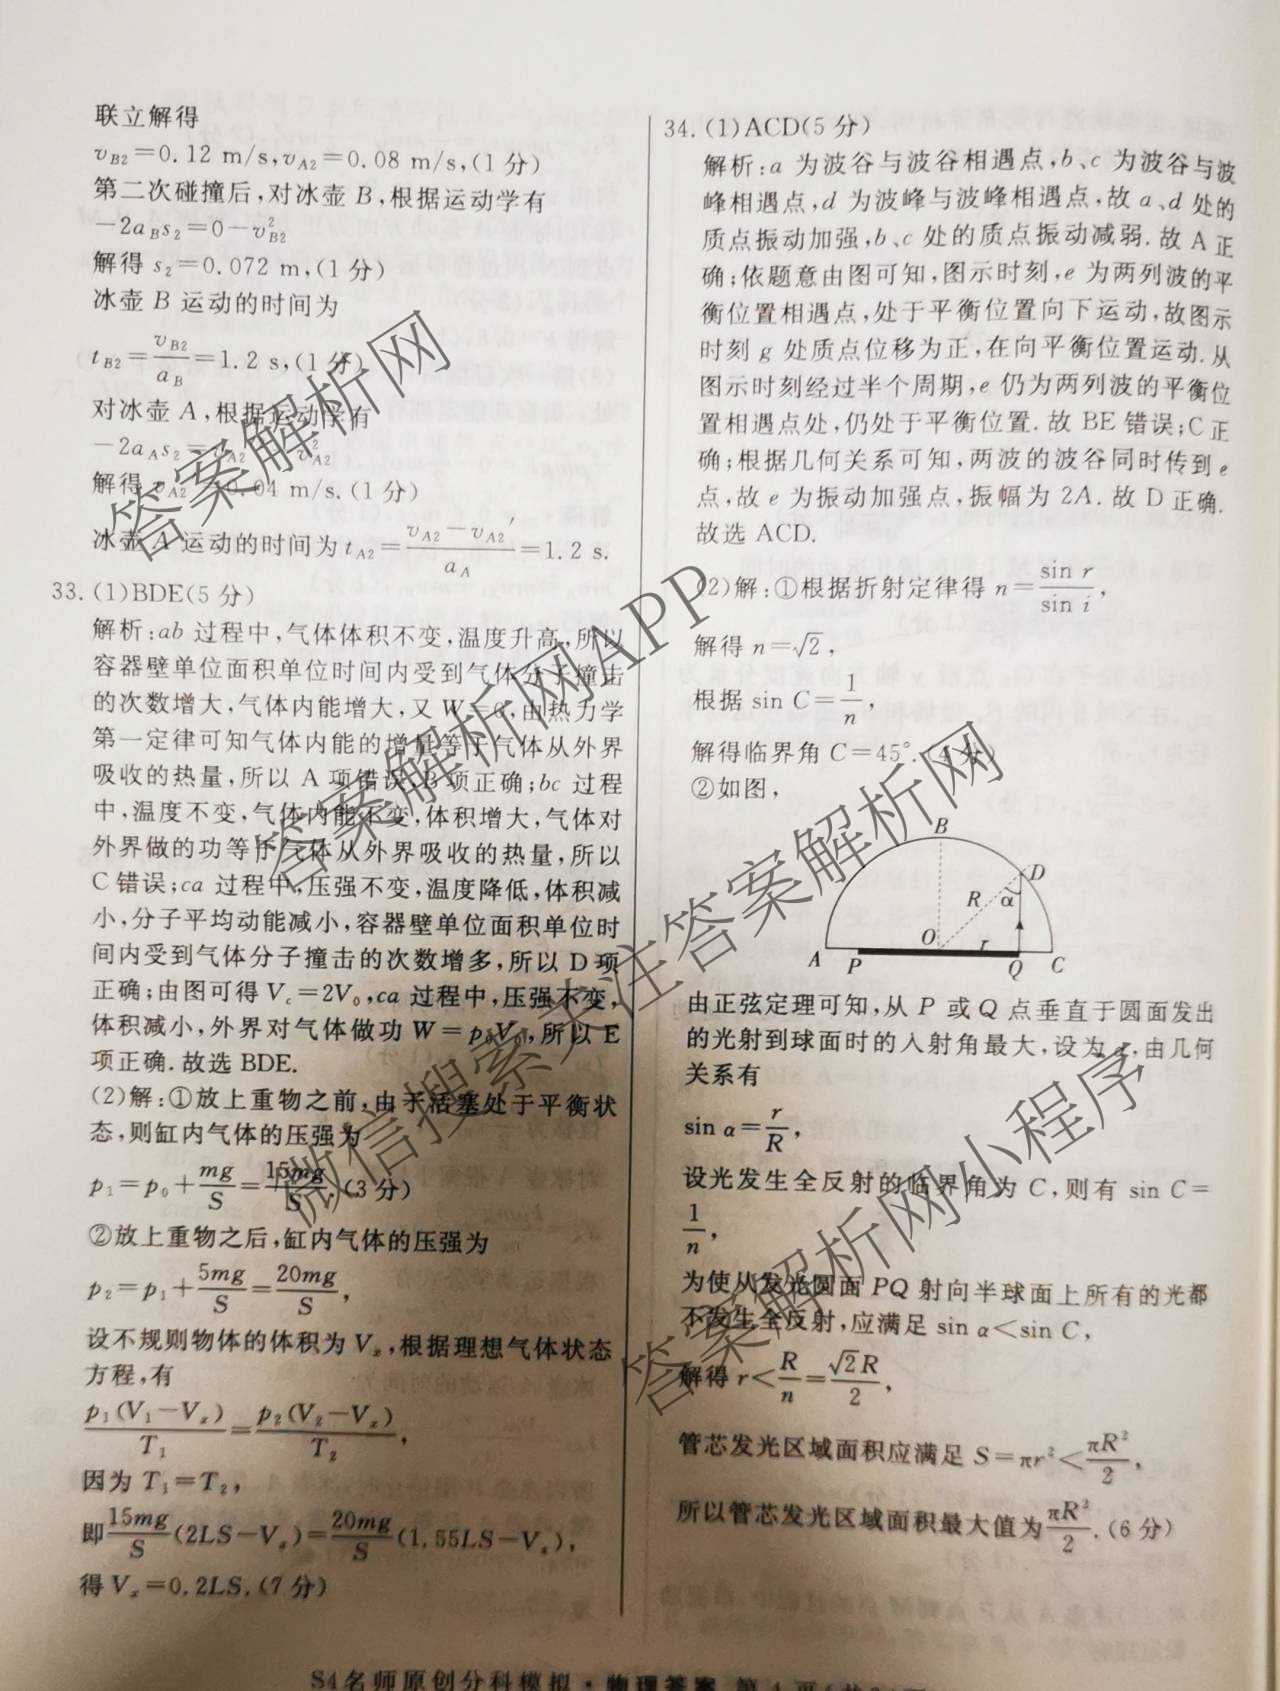 联立解得
v_B2=0.12 m/s,v_A2=0.08 m/s,(1分)
第二次碰撞后,对冰壶 B,根据运动学有
-2a_B s_2=0-v²_B2
解得 s_2=0.072 m,(1分)
冰壶 B 运动的时间为
t_B2=v_B2/a_B=1.2 s,(1分)
对冰壶 A,根据运动学有
-2a_A s_2=
解得 0.04 m/s.(1分)
冰壶 A 运动的时间为 t_A2=(v_A2-v_A2′)/a_A=1.2 s.
33.(1)BDE(5分)
解析:ab 过程中,气体体积不变,温度升高,所以
容器壁单位面积单位时间内受到气体分子撞击
的次数增大,气体内能增大,又 W=0,由热力学
第一定律可知气体内能的增量等于气体从外界
吸收的热量,所以 A 项错误,B 项正确;bc 过程
中,温度不变,气体内能不变,体积增大,气体对
外界做的功等于气体从外界吸收的热量,所以
C 错误;ca 过程中,压强不变,温度降低,体积减
小,分子平均动能减小,容器壁单位面积单位时
间内受到气体分子撞击的次数增多,所以 D 项
正确;由图可得 V_c=2V_0,ca 过程中,压强不变,
体积减小,外界对气体做功 W=p_0V_0,所以 E
项正确.故选 BDE.
(2)解:①放上重物之前,由于活塞处于平衡状
态,则缸内气体的压强为
p_1=p_0+mg/S=15mg/S.(3分)
②放上重物之后,缸内气体的压强为
p_2=p_1+5mg/S=20mg/S,
设不规则物体的体积为 V_x,根据理想气体状态
方程,有
p_1(V_1-V_x)/T_1=p_2(V_2-V_x)/T_2,
因为 T_1=T_2,
即15mg/S(2LS-V_x)=20mg/S(1.55LS-V_x),
得 V_x=0.2LS.(7分)
34.(1)ACD(5分)
解析:a 为波谷与波谷相遇点,b、c 为波谷与波
峰相遇点,d 为波峰与波峰相遇点,故 a、d 处的
质点振动加强,b、c 处的质点振动减弱.故 A 正
确;依题意由图可知,图示时刻,e 为两列波的平
衡位置相遇点,处于平衡位置向下运动,故图示
时刻 g 处质点位移为正,在向平衡位置运动.从
图示时刻经过半个周期,e 仍为两列波的平衡位
置相遇点处,仍处于平衡位置.故 BE 错误;C 正
确;根据几何关系可知,两波的波谷同时传到 e
点,故 e 为振动加强点,振幅为 2A.故 D 正确.
故选 ACD.
(2)解:①根据折射定律得 n=sin r/sin i,
解得 n=√2,
根据 sin C=1/n,
解得临界角 C=45°.(4分)
②如图,
B
D
R
α
O
r
A P Q C
由正弦定理可知,从 P 或 Q 点垂直于圆面发出
的光射到球面时的入射角最大,设为 α,由几何
关系有
sin α=r/R,
设光发生全反射的临界角为 C,则有 sin C=
1/n,
为使从发光圆面 PQ 射向半球面上所有的光都
不发生全反射,应满足 sin α<sin C,
解得 r<R/n=√2R/2,
管芯发光区域面积应满足 S=πr²<πR²/2,
所以管芯发光区域面积最大值为πR²/2.(6分)
S4名师原创分科模拟·物理答案
答案解析网
答案解析网APP
微信搜索关注答案解析网
答案解析网小程序